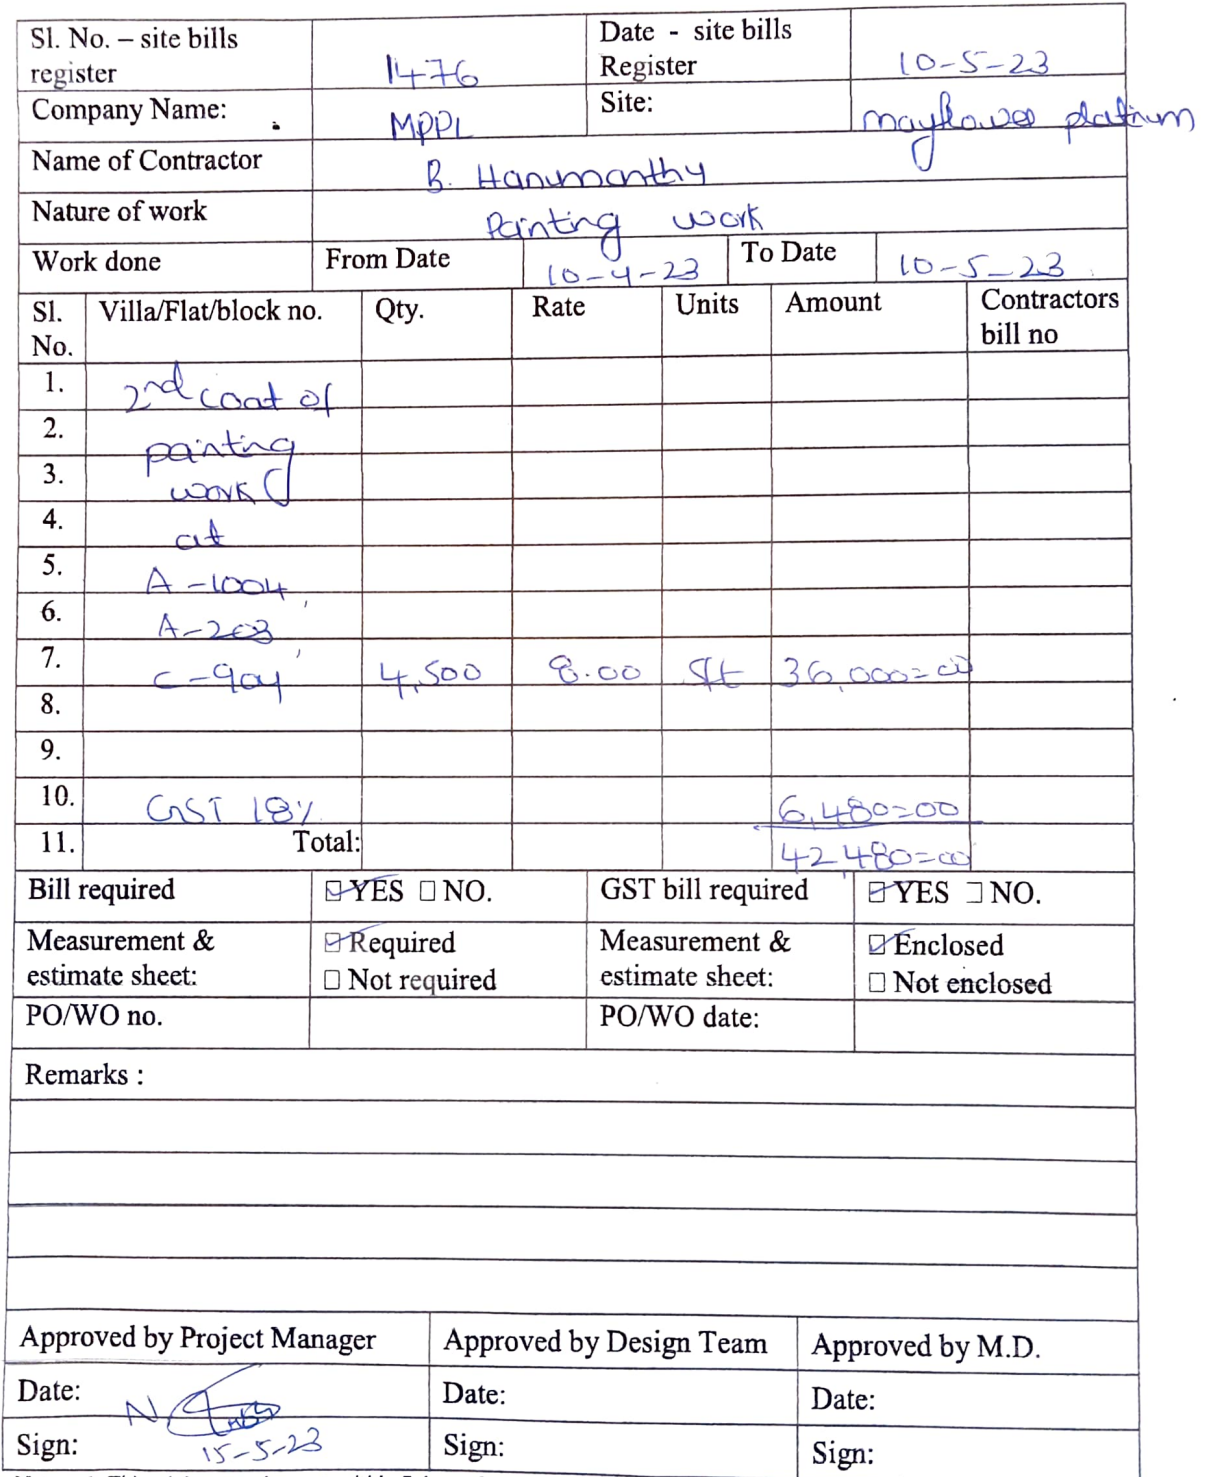 Sl. No. – site bills register 1476 Date - site bills Register 10-5-23
Company Name: MPPL Site: mayflower platinum
Name of Contractor B. Hanumanthy
Nature of work Painting work
Work done From Date 10-4-23 To Date 10-5-23
Sl. No. Villa/Flat/block no. Qty. Rate Units Amount Contractors bill no
1. 2nd coat of
2. painting
3. work
4. at
5. A-1004,
6. A-203,
7. C-904 4,500 8.00 sft 36,000=00
8.
9.
10. GST 18% 6,480=00
11. Total: 42,480=00
Bill required ☑ YES ☐ NO. GST bill required ☑ YES ☐ NO.
Measurement & estimate sheet: ☑ Required ☐ Not required Measurement & estimate sheet: ☑ Enclosed ☐ Not enclosed
PO/WO no. PO/WO date:
Remarks :
Approved by Project Manager Approved by Design Team Approved by M.D.
Date: Date: Date:
Sign: 15-5-23 Sign: Sign: